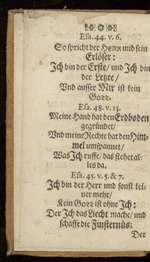 Esa. 44. v. 6.
So spricht der HErr und sein
Erlöser:
Ich bin der Erste/ und Ich bin
der Letzte/
Vnd ausser Mir ist kein
Gott.
Esa. 48. v. 13.
Meine Hand hat den Erdboden
gegründet/
Vnd meine Rechte hat den Him-
mel umspannet/
Was Ich ruffe/ das stehet al-
les da.
Esa. 45. v. 5. & 7.
Ich bin der Herr und sonst kei-
ner mehr/
Kein Gott ist ohne Ich:
Der Ich das Liecht mache/ und
schaffe die Finsternüs.
Der